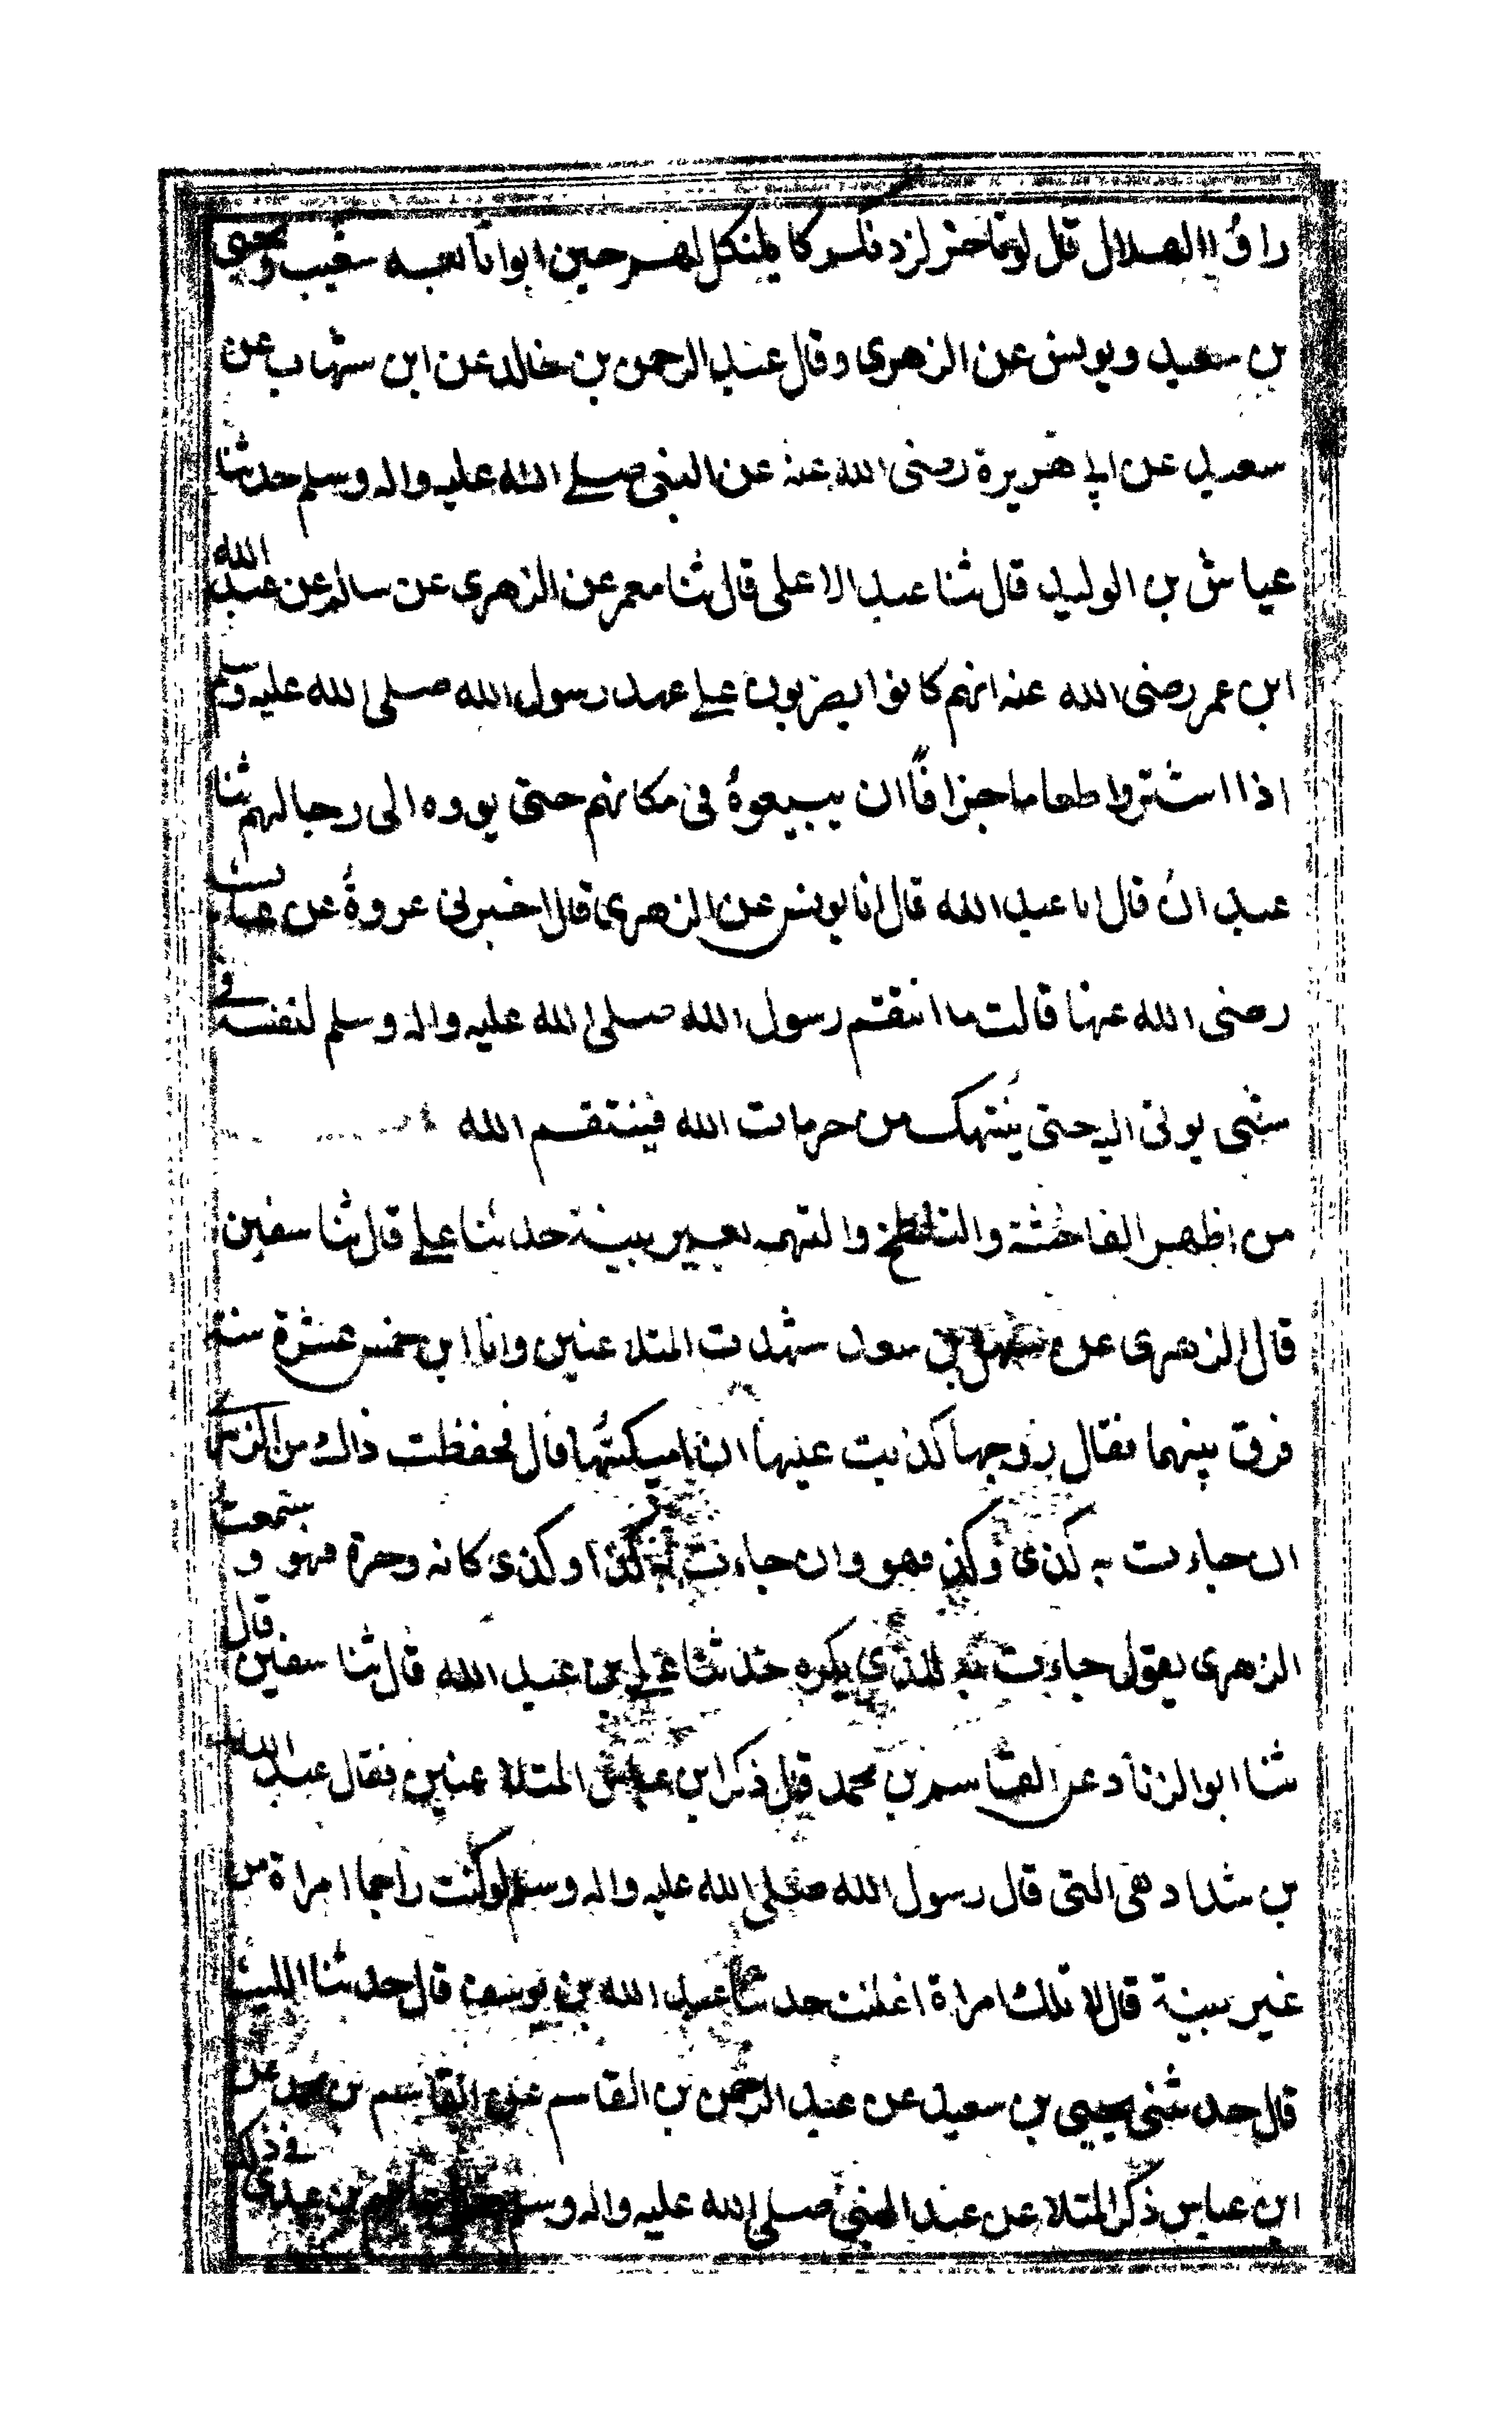 راوا الهلال قال لو تاخر لزدتكم كالمنكل لهم حين ابوا تابعه شعيب ويحيى
بن سعيد ويونس عن الزهرى وقال عبد الرحمن بن خالد عن ابن شهاب عن
سعيد عن ابي هريرة رضى الله عنه عن النبى صلے الله عليه واله وسلم حدثنا
عياش بن الوليد قال ثنا عبد الاعلى قال ثنا معمر عن الزهرى عن سالم عن عبد الله
ابن عمر رضى الله عنه انهم كانوا يضربون علے عهد رسول الله صلى الله عليه وسلم
اذا اشتروا طعاما جزافًا ان يبيعوهُ فى مكانهم حتى يووه الى رحالهم ثنا
عبد ان قال انا عبد الله قال انا يونس عن الزهرى قال اخبرنى عروةُ عن عايشة
رضى الله عنها قالت ما انتقم رسول الله صلى الله عليه واله وسلم لنفسه فى
شى يوتى اليه حتى يُنتهك من حرمات الله فينتقم الله
من اظهر الفاحشة والتلطخ والتهمه بغير بينة حدثنا علے قال ثنا سفين
قال الزهرى عن سهل بن سعد شهدت المتلاعنين وانا ابن خمس عشرة سنة
فرق بينهما فقال زوجها كذبت عليها ان امسكتُها قال فحفظت ذاك من الزهرى
ان جاءت به كذى وكذى فهو وان جاءت به كذا وكذى كانه وحرة فهو و سمعت
الزهرى يقول جاءت به للذى يكره حدثنا علے بن عبد الله قال ثنا سفين قال
ثنا ابو الزناد عن القاسم بن محمد قال ذكر ابن عباس المتلاعنين فقال عبد الله
بن شداد هى التى قال رسول الله صلى الله عليه واله وسلم لو كنت راجما امراة من
غير بينة قال لا تلك امراة اعلنت حدثنا عبد الله بن يوسف قال حدثنا الليث
قال حدثنى يحيى بن سعيد عن عبد الرحمن بن القاسم عن القاسم بن محمد عن
ابن عباس ذكر المتلاعن عند النبى صلى الله عليه واله وسلم فقال عاصم بن عدى فى ذلك